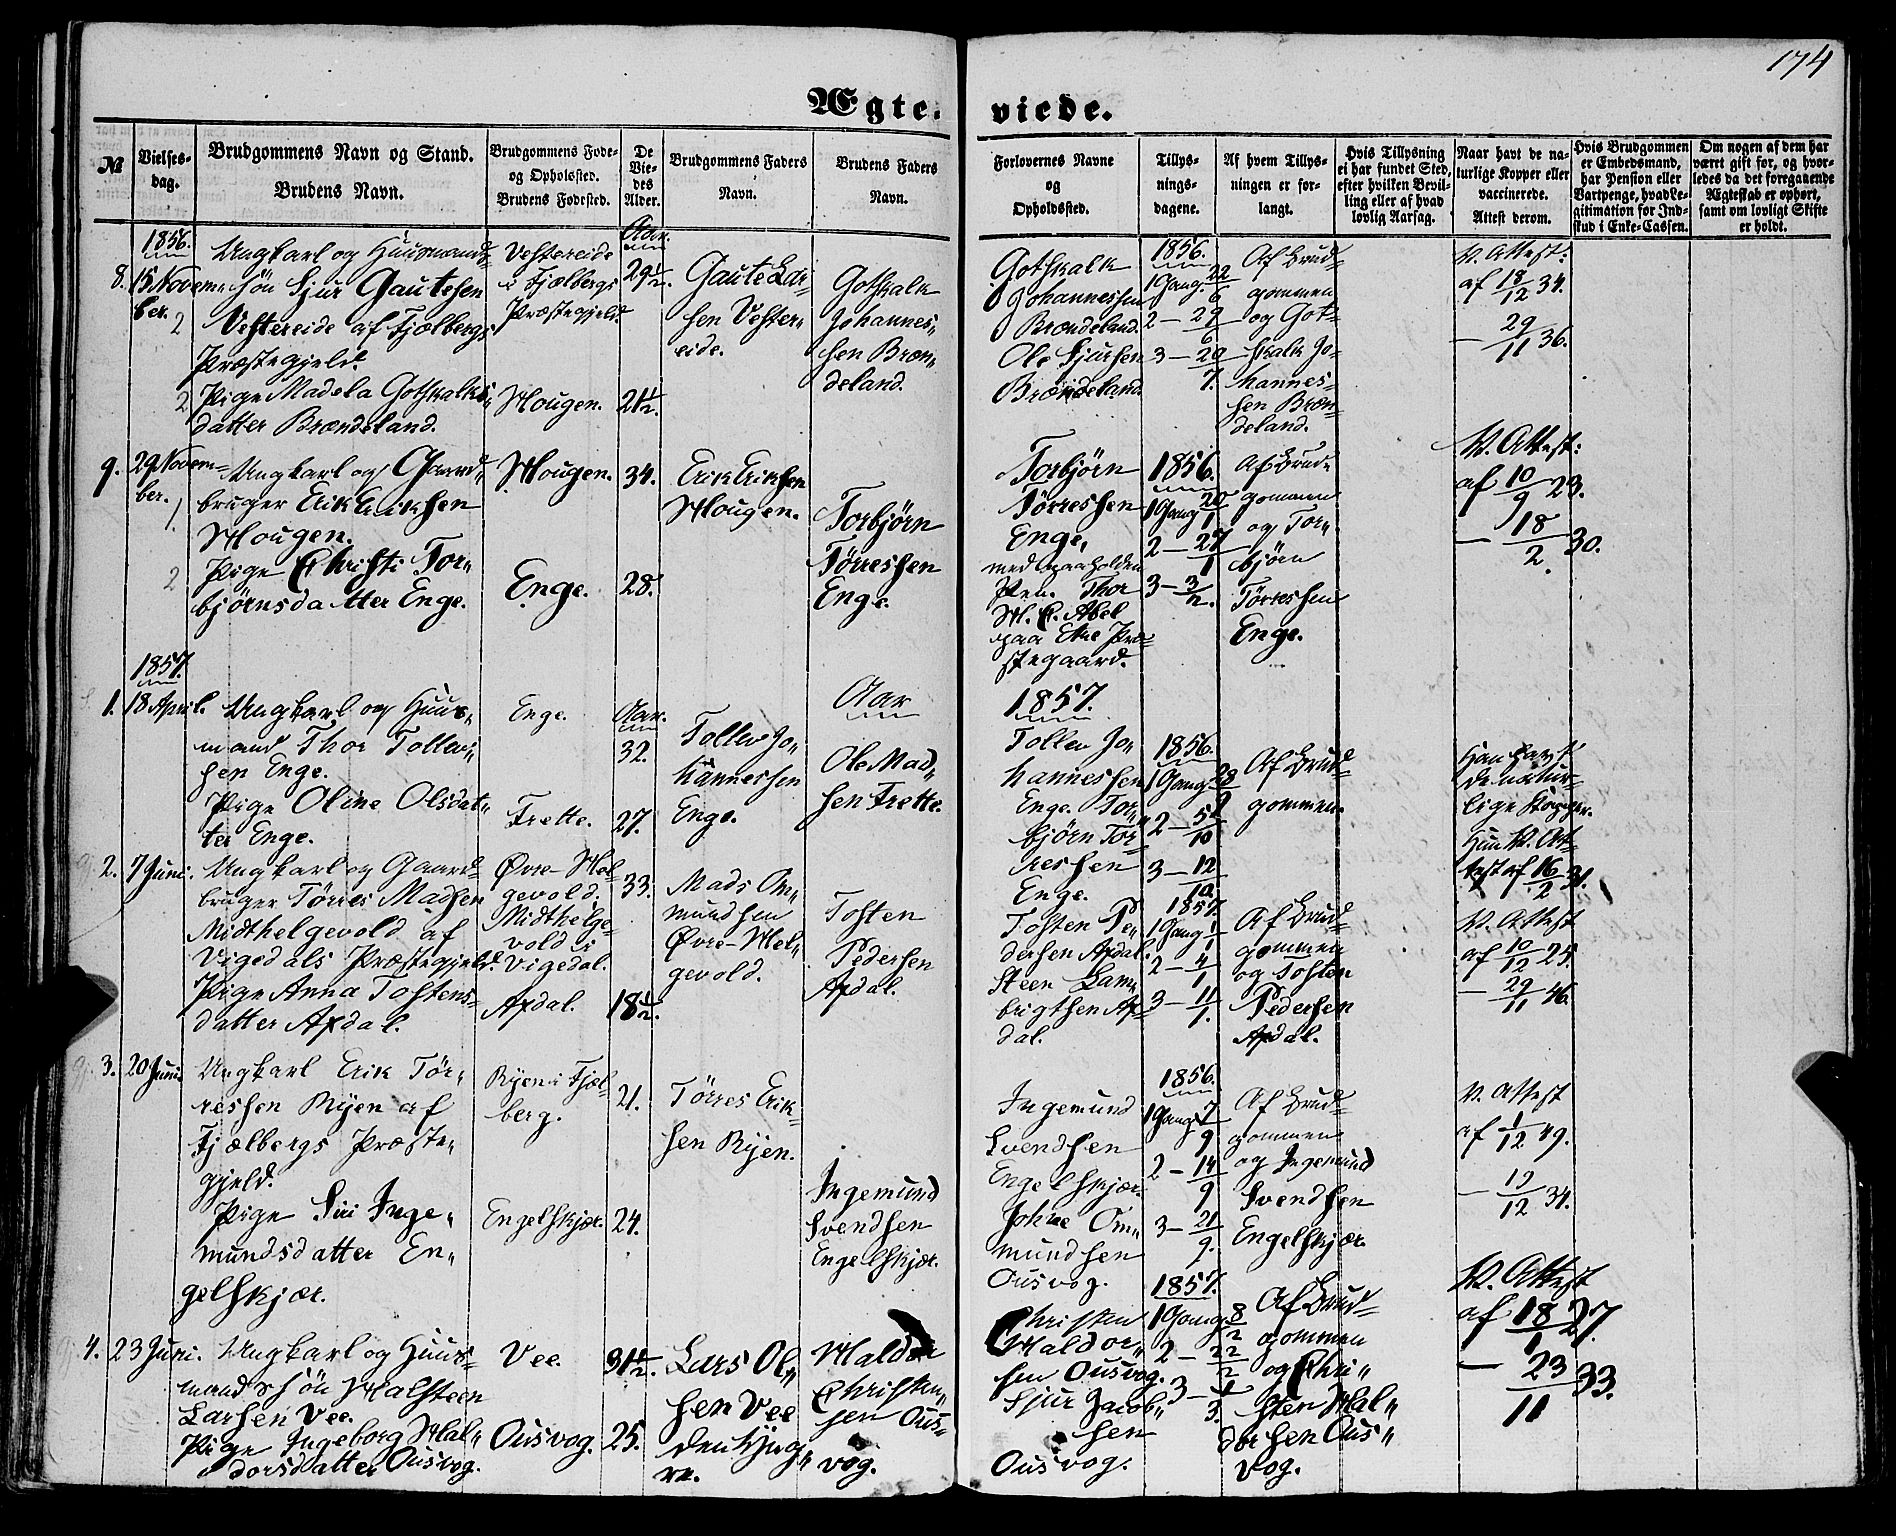 174
Ægte-viede.
№
Vielses-
dag.
Brudgommens Navn og Stand.
Brudens Navn.
Brudgommens Føde-
og Opholdssted.
Brudens Fødested.
De
Vie-
des
Alder.
Brudgommens Faders
Navn.
Brudens Faders
Navn.
Forlovernes Navne
og
Opholdssted.
Tillys-
nings-
dagene.
Af hvem Tillys-
ningen er for-
langt.
Hvis Tillysning
ei har fundet Sted,
efter hvilken Bevil-
ling eller af hvad
lovlig Aarsag.
Naar havt de na-
turlige Kopper eller
vaccinerede.
Attest derom.
Hvis Brudgommen
er Embedsmand,
har Pension eller
Vartpenge, hvad Le-
gitimation for Ind-
skud i Enke-Cassen.
Om nogen af dem har
været gift før, og hvor-
ledes da det foregaaende
Ægteskab er ophørt,
samt om lovligt Skifte
er holdt.
1856.
8. 15 Novem-
ber.
2
2
Ungkarl og Huusmands-
søn Sjur Gautesen
Vestereide af Fjælbergs
Præstegjeld.
Pige Madela Gotskalks-
datter Brændeland.
Vestereide
i Fjælbergs
Præstegjeld.
Hougen.
Aar.
29½.
21½.
Gaute Lar-
sen Vester-
eide.
Gotskalk
Johannes-
sen Bræn-
deland.
Gotskalk
Johannessen
Brændeland.
Ole Sjursen
Brændeland.
1856.
1 Gang 22/6
2 - 29/6
3 - 20/7.
Af Brud-
gommen
og Got-
skalk Jo-
hannes-
sen Bræn-
deland.
V. Attest:
af 18/12 34.
- 29/11 36.
9. 29 Novem-
ber.
1
2
Ungkarl og Gaard-
bruger Erik Eriksen
Hougen.
Pige Christi Tor-
bjørnsdatter Enge.
Hougen.
Enge.
34.
28.
Erik Eriksen
Hougen.
Torbjørn
Tørressen
Enge.
Torbjørn
Tørressen
Enge,
med paaholden
Pen. Thor
H. C. Abel
paa Etne Præ-
stegaard.
1856.
1 Gang 20/1
2 - 27/1
3 - 3/2.
Af Brud-
gommen
og Tor-
bjørn
Tørressen
Enge.
V. Attest:
af 10/9 23.
- 18/2. 30.
1857.
1. 18 April.
Ungkarl og Huus-
mand Thor Tollev-
sen Enge.
Pige Oline Olsdat-
ter Enge.
Enge.
Frette.
Aar.
32.
27.
Tollev Jo-
hannessen
Enge.
Aar
Ole Mad-
sen Frette.
1857.
Tollev Jo-
hannessen
Enge. Tor-
bjørn Tør-
ressen
Enge.
1856.
1 Gang 28/9
2 - 5/10
3 - 12/10.
Af Brud-
gommen.
Han havt
de natur-
lige Kopper.
Hun V. At-
test af 16/2 31.
2. 7 Juni.
Ungkarl og Gaard-
bruger Tørres Madsen
Midthelgevold af
Vigedals Præstegjeld.
Pige Anna Tostens-
datter Axdal.
Øvre-Hel-
gevold.
Midthelge-
vold i
Vigedal.
Axdal.
33.
18½.
Mads Om-
mundsen
Øvre-Hel-
gevold.
Tosten
Pedersen
Axdal.
Tosten Pe-
dersen Axdal.
Steen Lam-
brigtsen Ax-
dal.
1857.
1 Gang 1/1
2 - 4/1
3 - 11/1.
Af Brud-
gommen
og Tosten
Pedersen
Axdal.
V. Attest
af 10/12 25.
- 29/11 46.
3. 20 Juni.
Ungkarl Erik Tør-
ressen Ryen af
Fjælbergs Præste-
gjeld.
Pige Siri Inge-
mundsdatter En-
gelskjær.
Ryen i Fjæl-
berg.
Engelskjær.
21.
24.
Tørres Erik-
sen Ryen.
Ingemund
Svendsen
Engelskjær.
Ingemund
Svendsen
Engelskjær.
Johne Om-
mundsen
Ousvog.
1856.
1 Gang 7/9
2 - 14/9
3 - 21/9.
Af Brud-
gommen
og Ingemund
Svendsen
Engelskjær.
V. Attest
af 1/12 49.
- 19/12 34.
4. 23 Juni.
Ungkarl og Huus-
mandssøn Halsteen
Larsen Vee.
Pige Ingeborg Hal-
dorsdatter Ousvog.
Vee.
Ousvog.
31½.
25.
Lars Ol-
sen Vee
den Yng-
re.
Haldor
Christen-
sen Ous-
vog.
Christen
Haldor-
sen Ousvog.
Sjur Jacob-
sen
Ousvog.
1857.
1 Gang 8/2
2 - 22/2
3 - 1/3.
Af Brud-
gommen
og Chri-
sten Hal-
dorsen Ous-
vog.
V. Attest
af 18/1 27.
- 23/11 33.